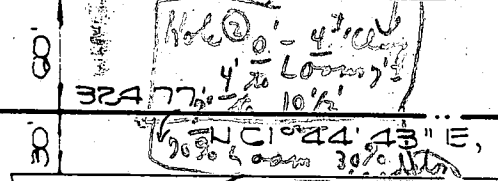 80'
Hole ② 0' - 4' Clay
4' to Loam 7½
324.77' to 10½'
30'
N C1°44'43" E,
70% Loam 30%